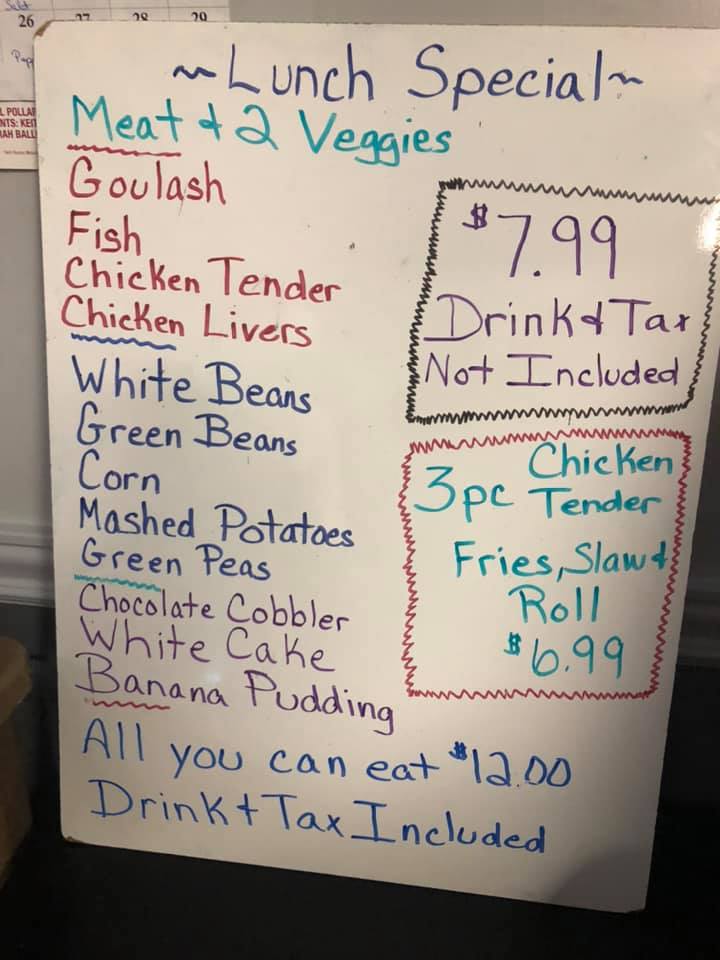 26 27 28 29
~Lunch Special~
Meat & 2 Veggies
Goulash
Fish
Chicken Tender
Chicken Livers
White Beans
Green Beans
Corn
Mashed Potatoes
Green Peas
Chocolate Cobbler
White Cake
Banana Pudding
$7.99
Drink & Tax
Not Included
3pc Chicken
Tender
Fries, Slaw &
Roll
$6.99
All you can eat $12.00
Drink + Tax Included